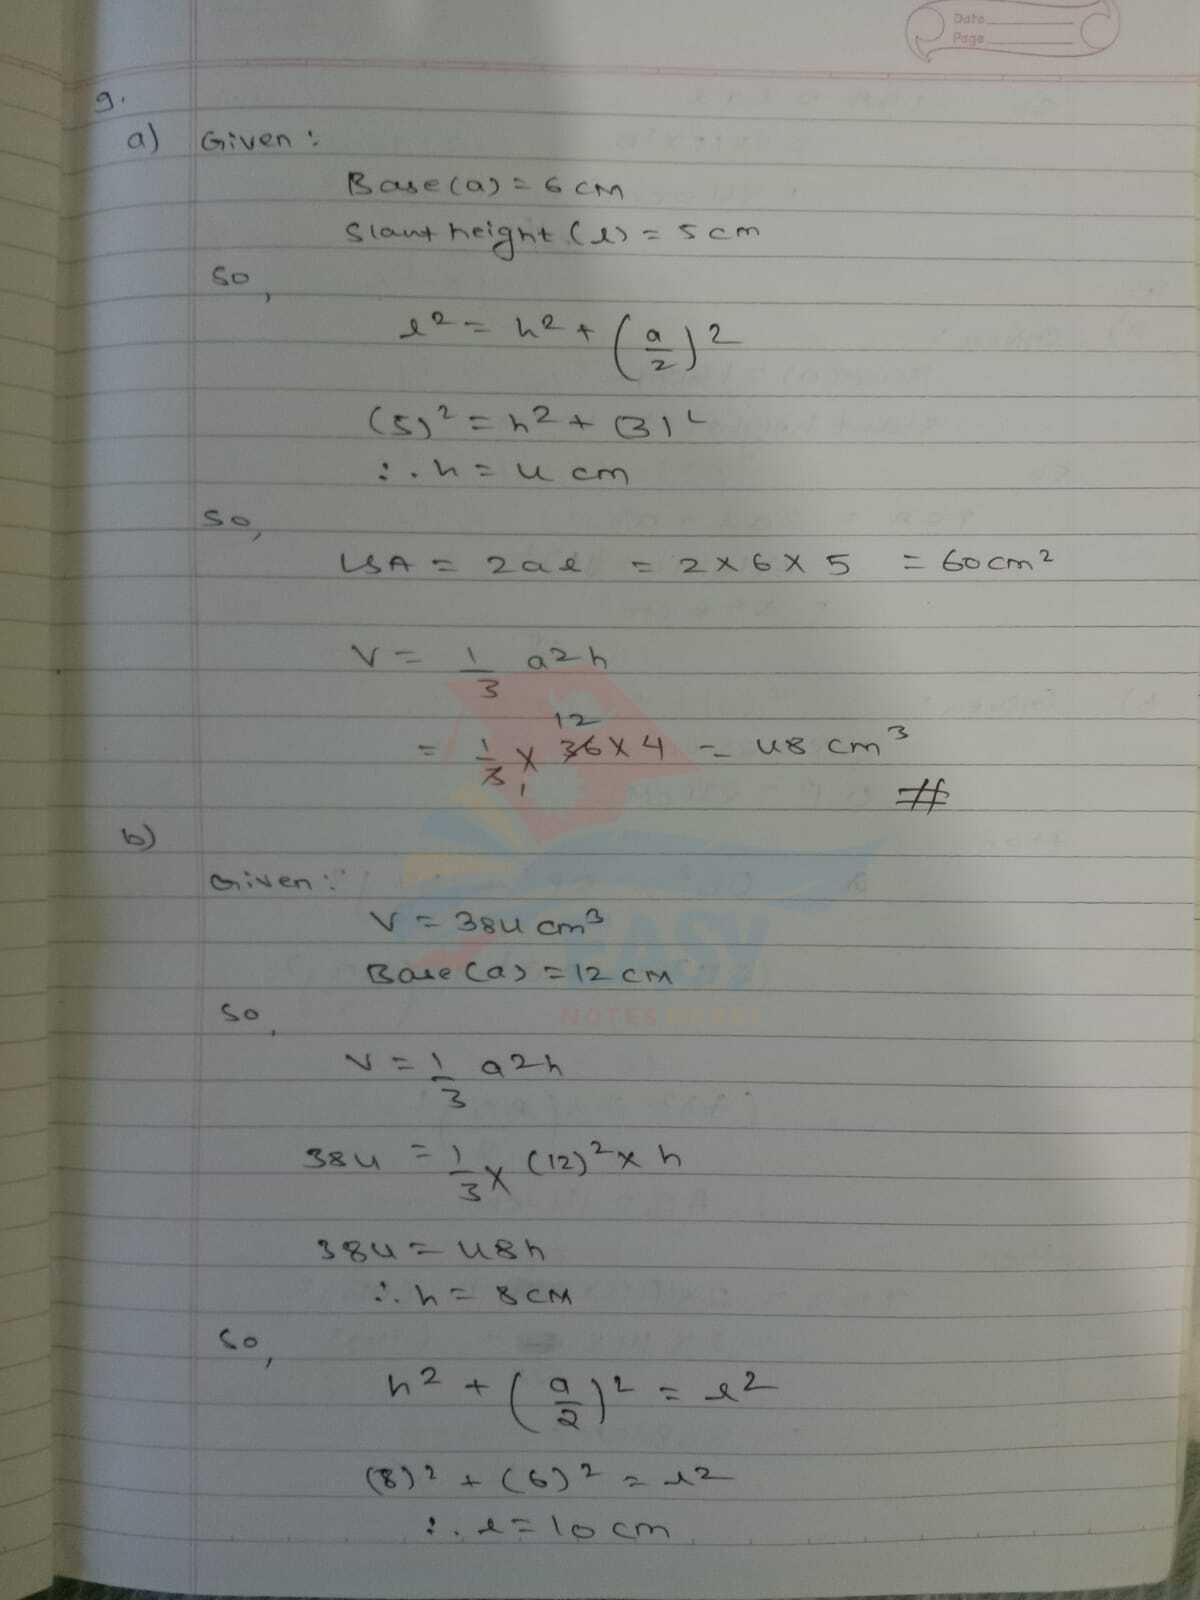 Date
Page
9.
a) Given:
Base(a) = 6 cm
Slant height (l) = 5 cm
So,
l² = h² + (a/2)²
(5)² = h² + (3)²
∴ h = 4 cm
So,
LSA = 2al = 2 × 6 × 5 = 60 cm²
V = 1/3 a2h
12
= 1/3 × 36 × 4 = 48 cm³
1
#
b)
Given:
V = 384 cm³
Base(a) = 12 cm
So,
V = 1/3 a2h
384 = 1/3 × (12)² × h
384 = 48h
∴ h = 8 cm
So,
h² + (a/2)² = l²
(8)² + (6)² = l²
∴ l = 10 cm
EASY
NOTES